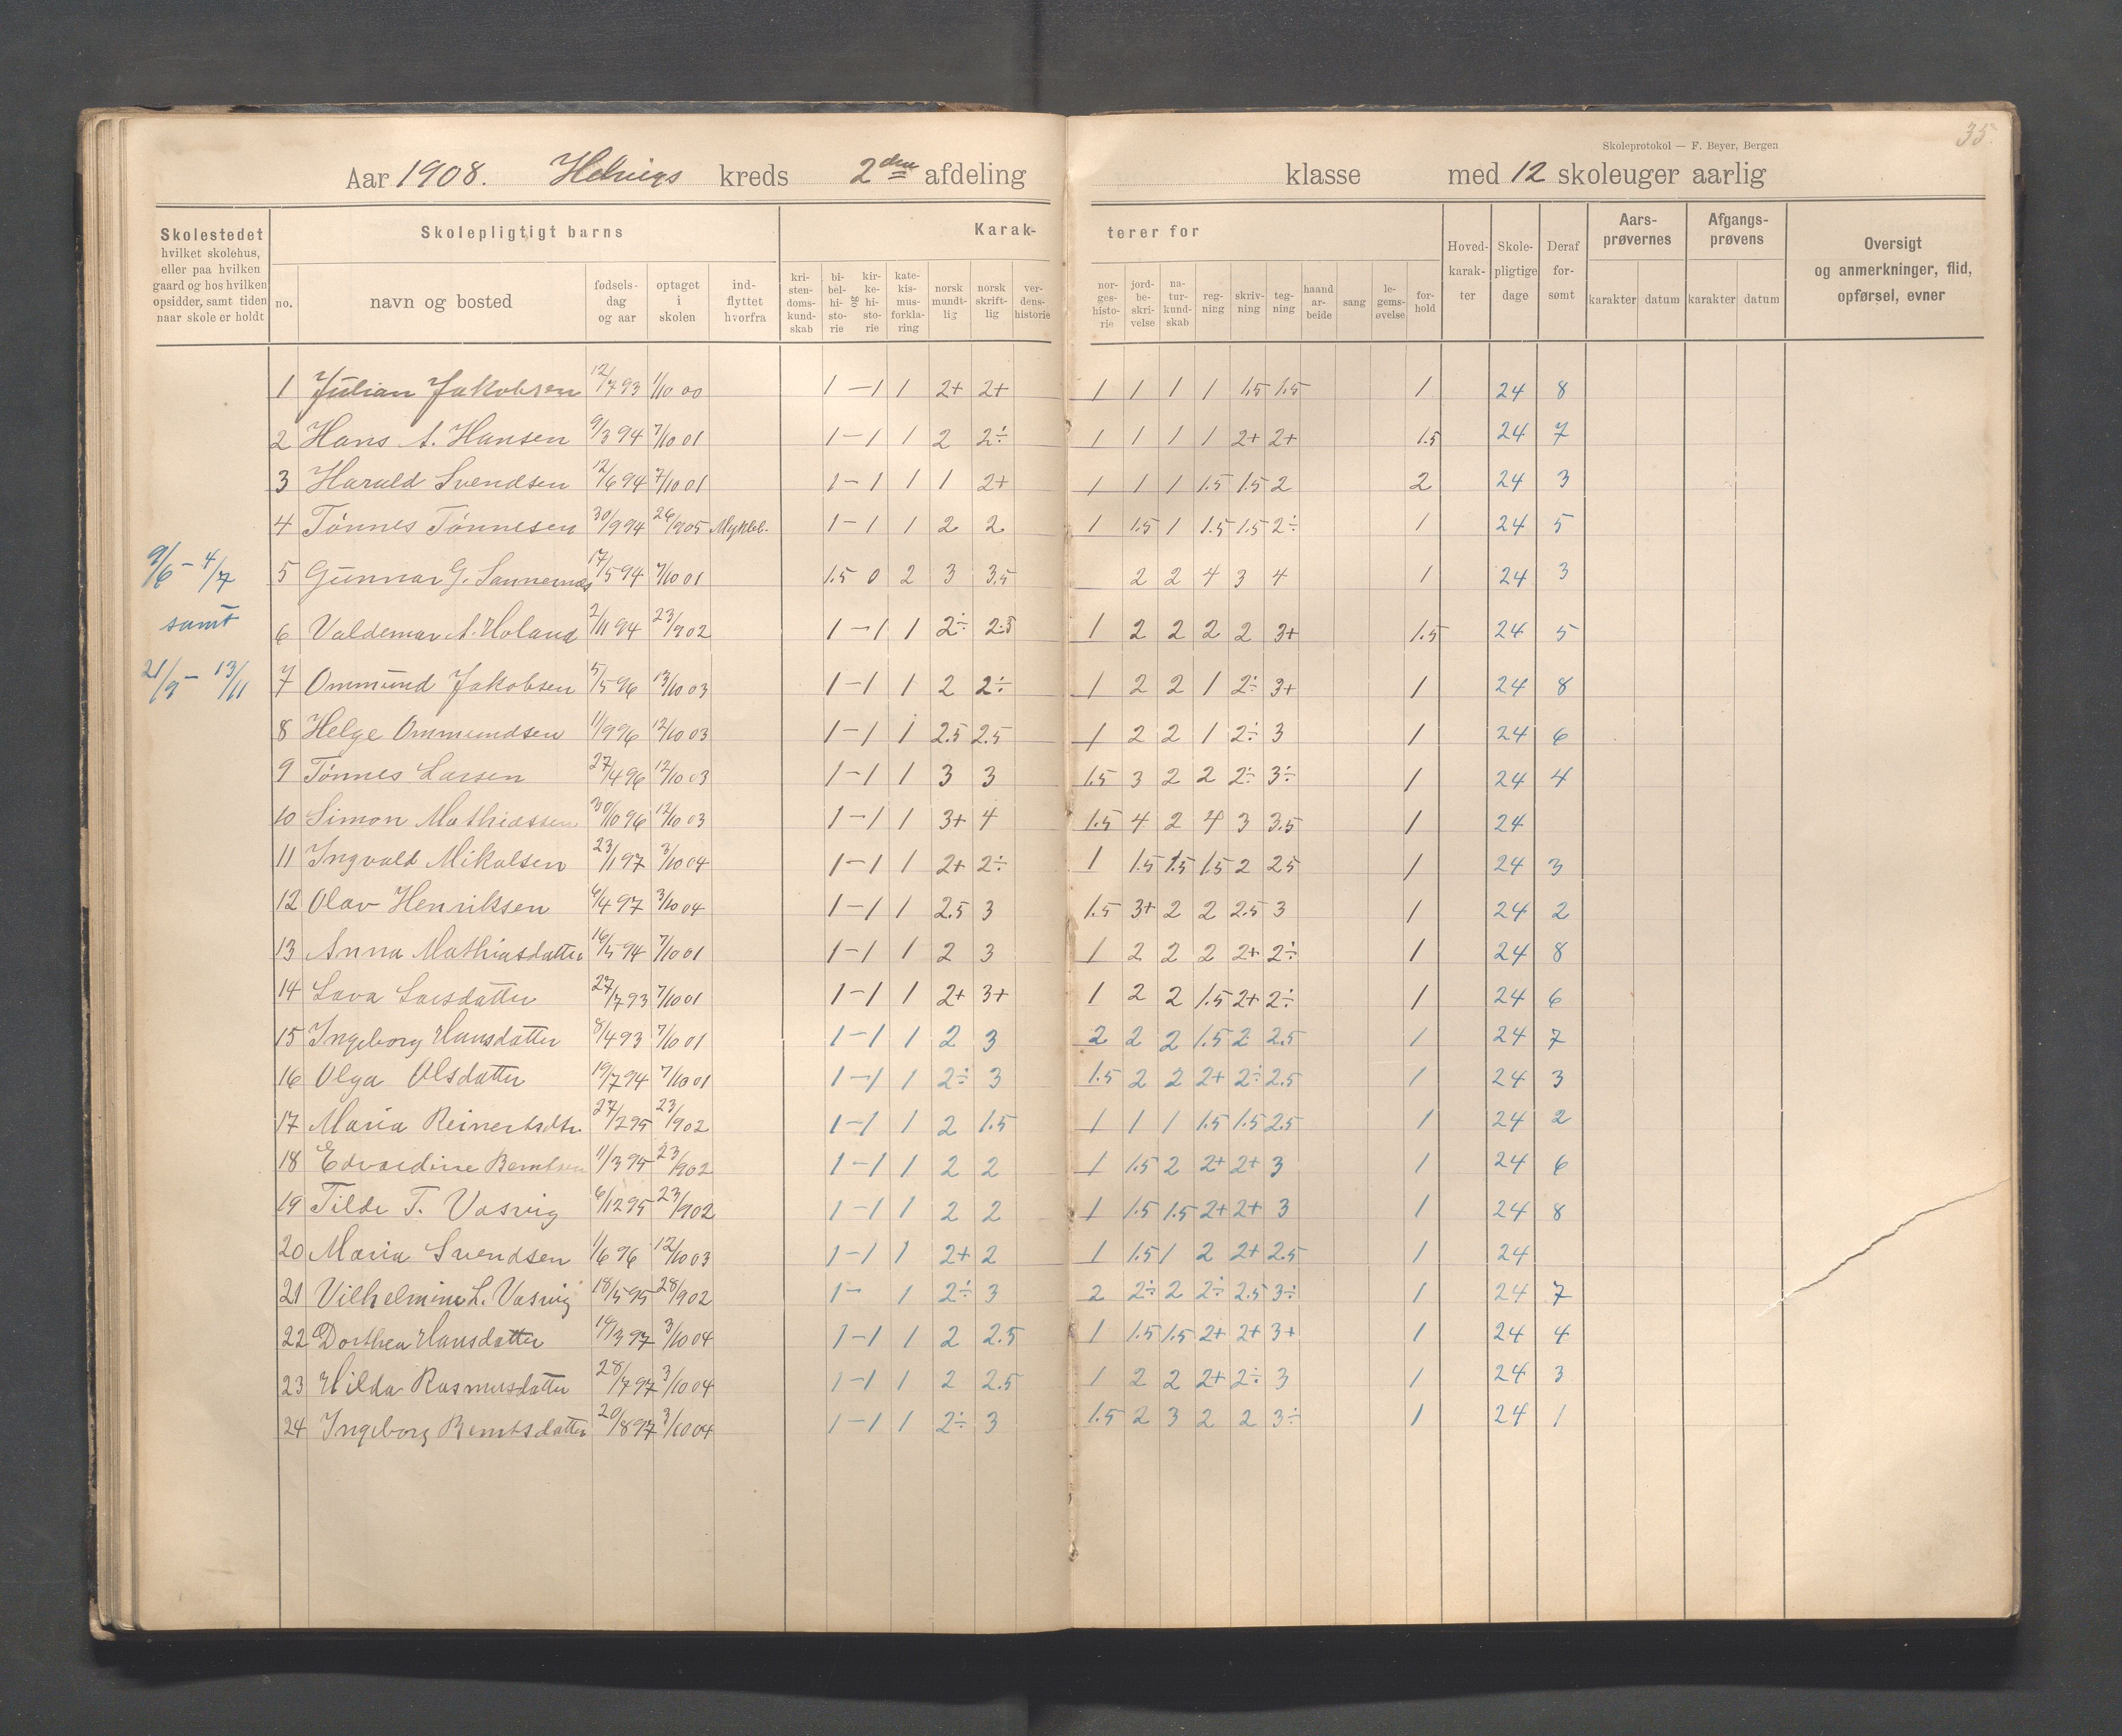 35
Skoleprotokol — F. Beyer, Bergen
Aar 1908. kreds 2den afdeling klasse med 12 skoleuger aarlig
Skolestedet hvilket skolehus, eller paa hvilken gaard og hos hvilken opsidder, samt tiden naar skole er holdt
Skolepligtigt barns
no. navn og bosted fødsels-dag og aar optaget i skolen ind-flyttet hvorfra
Karak-terer for
kri-sten-doms-kund-skab bi-bel-hi-sto-rie og kir-ke-hi-sto-rie kate-kis-mus-forkla-ring norsk mundt-lig norsk skrift-lig ver-dens-historie nor-ges-histo-rie jord-be-skri-velse na-tur-kund-skab reg-ning skriv-ning teg-ning haand ar-beide sang le-gems-øvelse for-hold
Hoved-karak-ter Skole-pligtige dage Deraf for-sømt
Aars-prøvernes karakter datum
Afgangs-prøvens karakter datum
Oversigt og anmerkninger, flid, opførsel, evner
9/6 – 4/7
samt
21/9 – 13/11
1 Julian Jakobsen 12/7 93 1/10 00 1 – 1 1 2+ 2+ 1 1 1 1 1.5 1.5 1 24 8
2 Hans A. Hansen 9/3 94 7/10 01 1 – 1 1 2 2÷ 1 1 1 1 2+ 2+ 1.5 24 7
3 Harald Svendsen 12/6 94 7/10 01 1 – 1 1 1 2+ 1 1 1 1.5 1.5 2 2 24 3
4 Tønnes Tønnesen 30/9 94 26/9 05 Mykleb. 1 – 1 1 2 2 1 1.5 1 1.5 1.5 2÷ 1 24 5
5 Gunnar G. Sannernæs 17/5 94 7/10 01 1.5 0 2 3 3.5 2 2 4 3 4 1 24 3
6 Valdemar A. Holand 2/11 94 23/9 02 1 – 1 1 2÷ 2.5 1 2 2 2 2 3+ 1.5 24 5
7 Ommund Jakobsen 5/5 96 13/10 03 1 – 1 1 2 2÷ 1 2 2 1 2÷ 3+ 1 24 8
8 Helge Ommundsen 11/9 96 12/10 03 1 – 1 1 2.5 2.5 1 2 2 1 2÷ 3 1 24 6
9 Tønnes Larsen 27/4 96 12/10 03 1 – 1 1 3 3 1.5 3 2 2 2÷ 3÷ 1 24 4
10 Simon Mathiassen 30/10 96 12/10 03 1 – 1 1 3+ 4 1.5 4 2 4 3 3.5 1 24
11 Ingvald Mikalsen 23/1 97 3/10 04 1 – 1 1 2+ 2÷ 1 1.5 1.5 1.5 2 2.5 1 24 3
12 Olav Henriksen 6/4 97 3/10 04 1 – 1 1 2.5 3 1.5 3+ 2 2 2.5 3 1 24 2
13 Anna Mathiasdatter 16/5 94 7/10 01 1 – 1 1 2 3 1 2 2 2 2+ 2÷ 1 24 8
14 Lava Larsdatter 27/7 93 7/10 01 1 – 1 1 2+ 3+ 1 2 2 1.5 2+ 2÷ 1 24 6
15 Ingeborg Hansdatter 8/4 93 7/10 01 1 – 1 1 2 3 2 2 2 1.5 2 2.5 1 24 7
16 Olga Olsdatter 19/7 94 7/10 01 1 – 1 1 2÷ 3 1.5 2 2 2+ 2÷ 2.5 1 24 3
17 Maria Reinertsdtr. 27/2 95 23/9 02 1 – 1 1 2 1.5 1 1 1 1.5 1.5 2.5 1 24 2
18 Edvardine Berntsen 11/3 95 23/9 02 1 – 1 1 2 2 1 1.5 2 2+ 2+ 3 1 24 6
19 Tilde T. Vasvig 6/12 95 23/9 02 1 – 1 1 2 2 1 1.5 1.5 2+ 2+ 3 1 24 8
20 Maria Svendsen 1/6 96 12/10 03 1 – 1 1 2+ 2 1 1.5 1 2 2+ 2.5 1 24
21 Vilhelmine L. Vasvig 18/5 95 28/9 02 1 – 1 2÷ 3 2 2÷ 2 2÷ 2.5 3÷ 1 24 7
22 Dorthea Hansdatter 14/3 97 3/10 04 1 – 1 1 2 2.5 1 1.5 1.5 2+ 2+ 3+ 1 24 4
23 Hilda Rasmusdatter 28/7 97 3/10 04 1 – 1 1 2 2.5 1 2 2 2+ 2÷ 3 1 24 3
24 Ingeborg Berntsdatter 20/8 97 3/10 04 1 – 1 1 2÷ 3 1.5 2 3 2 2 3÷ 1 24 1